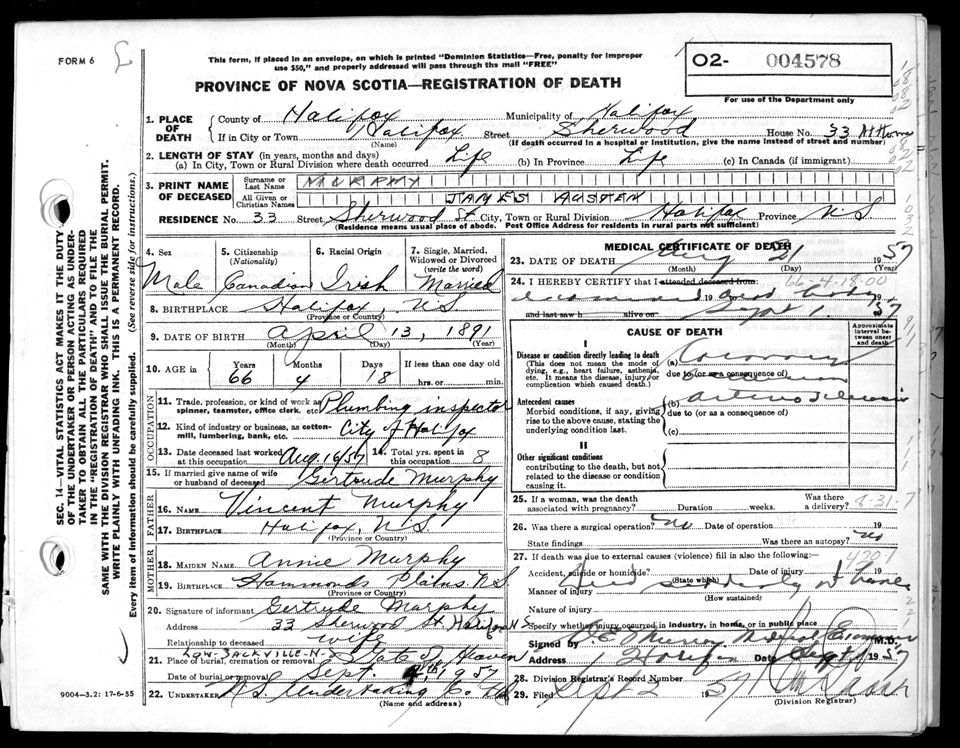 FORM 6
This form, if placed in an envelope, on which is printed "Dominion Statistics—Free, penalty for improper
use $50," and properly addressed will pass through the mail "FREE"
PROVINCE OF NOVA SCOTIA—REGISTRATION OF DEATH
O2- 004578
For use of the Department only
1. PLACE OF DEATH
County of Halifax Municipality of Halifax
If in City or Town Halifax Street Sherwood House No. 33 At Home
(Name) (If death occurred in a hospital or institution, give the name instead of street and number)
2. LENGTH OF STAY (in years, months and days)
(a) In City, Town or Rural Division where death occurred Life (b) In Province Life (c) In Canada (if immigrant)
3. PRINT NAME OF DECEASED
Surname or Last Name MURPHY
All Given or Christian Names JAMES AUSTEN
RESIDENCE No. 33 Street Sherwood St City, Town or Rural Division Halifax Province N S
(Residence means usual place of abode. Post Office Address for residents in rural parts not sufficient)
4. Sex 5. Citizenship (Nationality) 6. Racial Origin 7. Single, Married, Widowed or Divorced (write the word)
Male Canadian Irish Married
8. BIRTHPLACE Halifax N S
(Province or Country)
9. DATE OF BIRTH April 13, 1891
(Month) (Day) (Year)
10. AGE in Years Months Days If less than one day old
66 4 18 hrs. or min.
OCCUPATION
11. Trade, profession, or kind of work as spinner, teamster, office clerk, etc. Plumbing inspector
12. Kind of industry or business, as cotton-mill, lumbering, bank, etc. City of Halifax
13. Date deceased last worked at this occupation Aug 16/57 14. Total yrs. spent in this occupation 8
15. If married give name of wife or husband of deceased Gertrude Murphy
FATHER
16. NAME Vincent Murphy
17. BIRTHPLACE Halifax, N S
(Province or Country)
MOTHER
18. MAIDEN NAME Annie Murphy
19. BIRTHPLACE Hammonds Plains N S
(Province or Country)
20. Signature of informant Gertrude Murphy
Address 33 Sherwood St. Halifax N S
Relationship to deceased wife
LOW-SACKVILLE-N-S
21. Place of burial, cremation or removal Gate of Heaven
Date of burial or removal Sept. 1957
22. UNDERTAKER N S Undertaking Co
(Name and address)
9004-3.2: 17-6-55
SEC. 14—VITAL STATISTICS ACT MAKES IT THE DUTY
OF THE UNDERTAKER OR PERSON ACTING AS UNDER-
TAKER TO OBTAIN ALL THE PARTICULARS REQUIRED
IN THE "REGISTRATION OF DEATH" AND TO FILE THE
SAME WITH THE DIVISION REGISTRAR WHO SHALL ISSUE THE BURIAL PERMIT.
WRITE PLAINLY WITH UNFADING INK. THIS IS A PERMANENT RECORD.
Every item of information should be carefully supplied. (See reverse side for instructions.)
MEDICAL CERTIFICATE OF DEATH
23. DATE OF DEATH Aug 1957
(Month) (Day) (Year)
24. I HEREBY CERTIFY that I attended deceased from: 66-4-18-00
19
and last saw h alive on Sept 1, 57
CAUSE OF DEATH
Approximate interval between onset and death
I
Disease or condition directly leading to death
(This does not mean the mode of dying, e.g., heart failure, asthenia, etc. It means the disease, injury, or complication which caused death.)
(a) Coronary
due to (or as a consequence of)
Antecedent causes
Morbid conditions, if any, giving rise to the above cause, stating the underlying condition last.
(b)
due to (or as a consequence of)
(c)
II
Other significant conditions
contributing to the death, but not related to the disease or condition causing it.
25. If a woman, was the death associated with pregnancy? Duration weeks. Was there a delivery? 8-31-7
26. Was there a surgical operation? no Date of operation 19
State findings Was there an autopsy? no
27. If death was due to external causes (violence) fill in also the following:— 420.1
Accident, suicide or homicide? Date of injury 19
(State which)
Manner of injury Died suddenly at home
(How sustained)
Nature of injury
Specify whether injury occurred in industry, in home, or in public place
Signed by Murray Medical Examiner M.D.
Address Halifax Date Sept 1 1957
28. Division Registrar's Record Number
29. Filed Sept 2 1957
(Division Registrar)